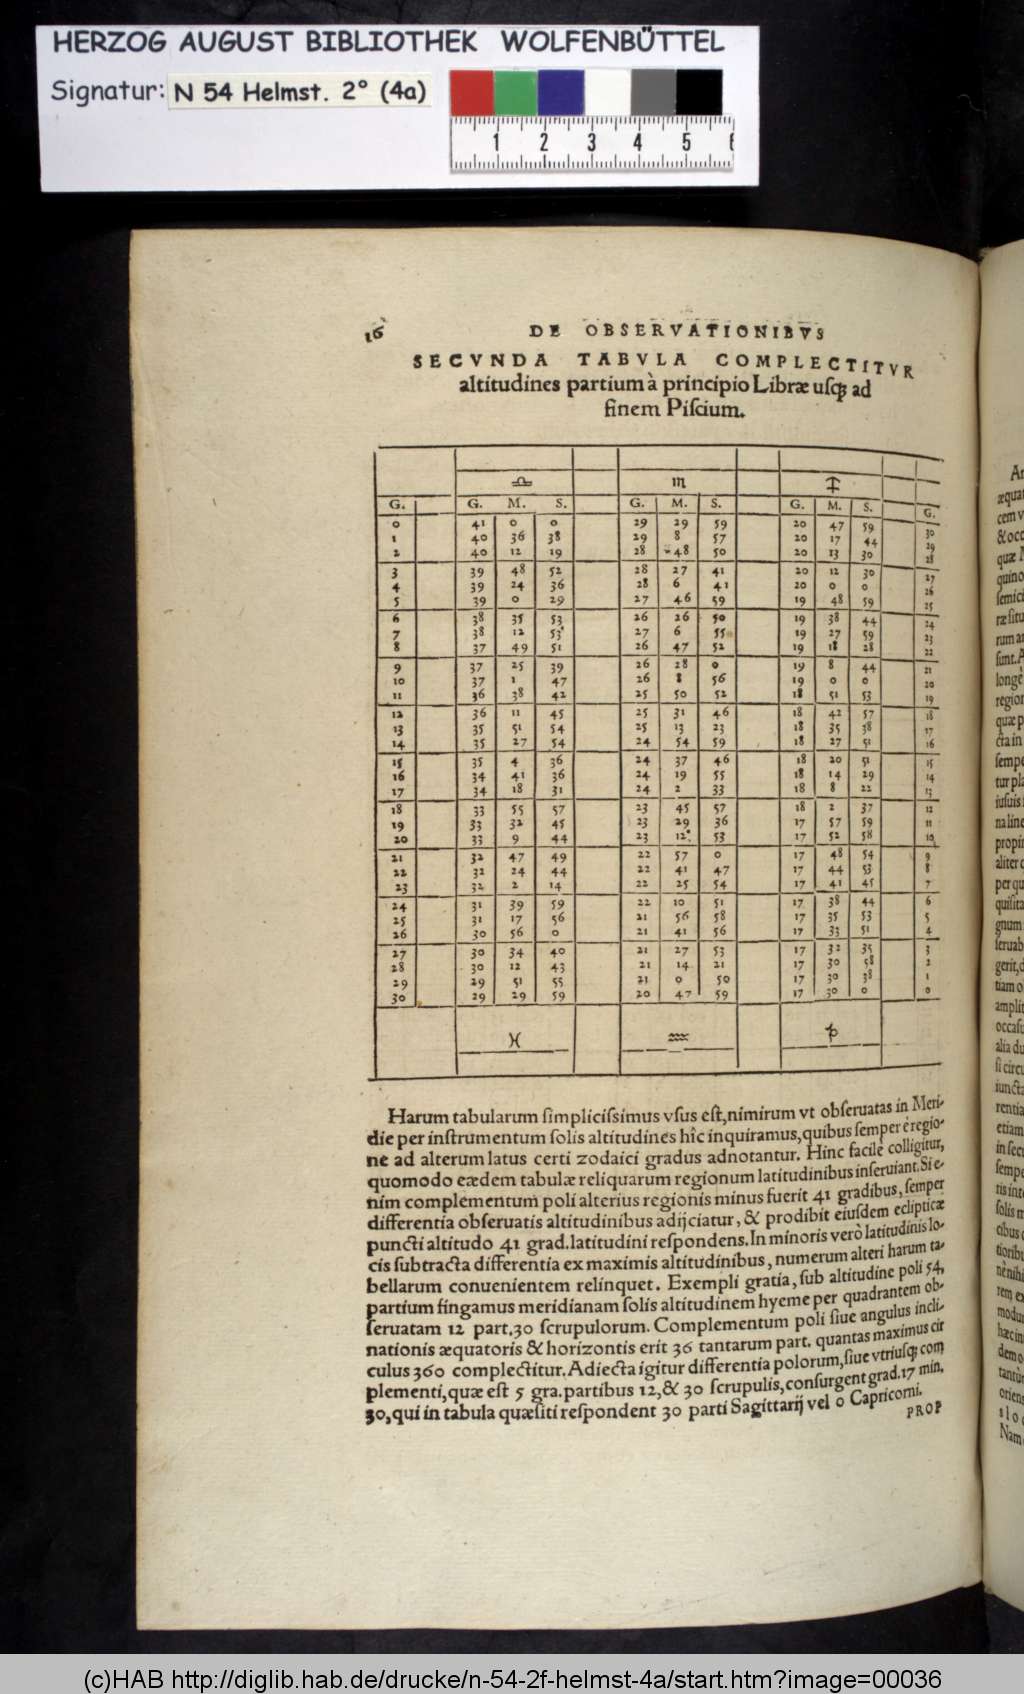 HERZOG AUGUST BIBLIOTHEK WOLFENBÜTTEL
Signatur: N 54 Helmst. 2° (4a)
1 2 3 4 5 6
16 DE OBSERVATIONIBVS
SECVNDA TABVLA COMPLECTITVR
altitudines partium à principio Libræ usq; ad
finem Piscium.
♎ ♏ ♐
G. G. M. S. G. M. S. G. M. S. G.
0 41 0 0 29 29 59 20 47 59 30
1 40 36 38 29 8 57 20 17 44 29
2 40 12 19 28 48 50 20 13 30 28
3 39 48 52 28 27 41 20 12 30 27
4 39 24 36 28 6 41 20 0 0 26
5 39 0 29 27 46 59 19 48 59 25
6 38 35 53 26 26 50 19 38 44 24
7 38 12 53 27 6 55 19 27 59 23
8 37 49 51 26 47 52 19 18 28 22
9 37 25 39 26 28 0 19 8 44 21
10 37 1 47 26 8 56 19 0 0 20
11 36 38 42 25 50 52 18 51 53 19
12 36 11 45 25 31 46 18 42 57 18
13 35 51 54 25 13 23 18 35 38 17
14 35 27 54 24 54 59 18 27 51 16
15 35 4 36 24 37 46 18 20 51 15
16 34 41 36 24 19 55 18 14 29 14
17 34 18 31 24 2 33 18 8 22 13
18 33 55 57 23 45 57 18 2 37 12
19 33 32 45 23 29 36 17 57 59 11
20 33 9 44 23 12 53 17 52 58 10
21 32 47 49 22 57 0 17 48 54 9
22 32 24 44 22 41 47 17 44 53 8
23 32 2 14 22 25 54 17 41 45 7
24 31 39 59 22 10 51 17 38 44 6
25 31 17 56 21 56 58 17 35 53 5
26 30 56 0 21 41 56 17 33 51 4
27 30 34 40 21 27 53 17 32 35 3
28 30 12 43 21 14 21 17 30 58 2
29 29 51 55 21 0 50 17 30 38 1
30 29 29 59 20 47 59 17 30 0 0
♓ ♒ ♑
Harum tabularum simplicissimus vsus est, nimirum vt obseruatas in Meri-
die per instrumentum solis altitudines hîc inquiramus, quibus semper è regio-
ne ad alterum latus certi zodaici gradus adnotantur. Hinc facilè colligitur,
quomodo eædem tabulæ reliquarum regionum latitudinibus inseruiant. Si e-
nim complementum poli alterius regionis minus fuerit 41 gradibus, semper
differentia obseruatis altitudinibus adijciatur, & prodibit eiusdem eclipticæ
puncti altitudo 41 grad. latitudini respondens. In minoris verò latitudinis lo-
cis subtracta differentia ex maximis altitudinibus, numerum alteri harum ta-
bellarum conuenientem relinquet. Exempli gratia, sub altitudine poli 54,
partium fingamus meridianam solis altitudinem hyeme per quadrantem ob-
seruatam 12 part. 30 scrupulorum. Complementum poli siue angulus incli-
nationis æquatoris & horizontis erit 36 tantarum part. quantas maximus cir
culus 360 complectitur. Adiecta igitur differentia polorum, siue vtriusq; com
plementi, quæ est 5 gra. partibus 12, & 30 scrupulis, consurgent grad. 17 min.
30, qui in tabula quæsiti respondent 30 parti Sagittarij vel 0 Capricorni.
PROP
(c)HAB http://diglib.hab.de/drucke/n-54-2f-helmst-4a/start.htm?image=00036